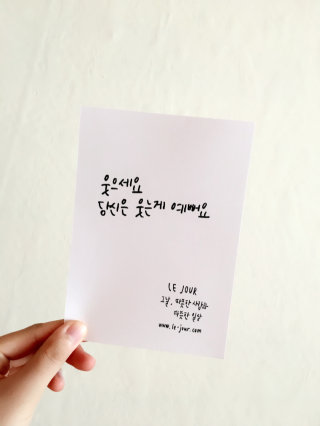 웃으세요
당신은 웃는게 예뻐요
LE JOUR
그날, 따뜻한 사람과
따뜻한 일상
www.le-jour.com